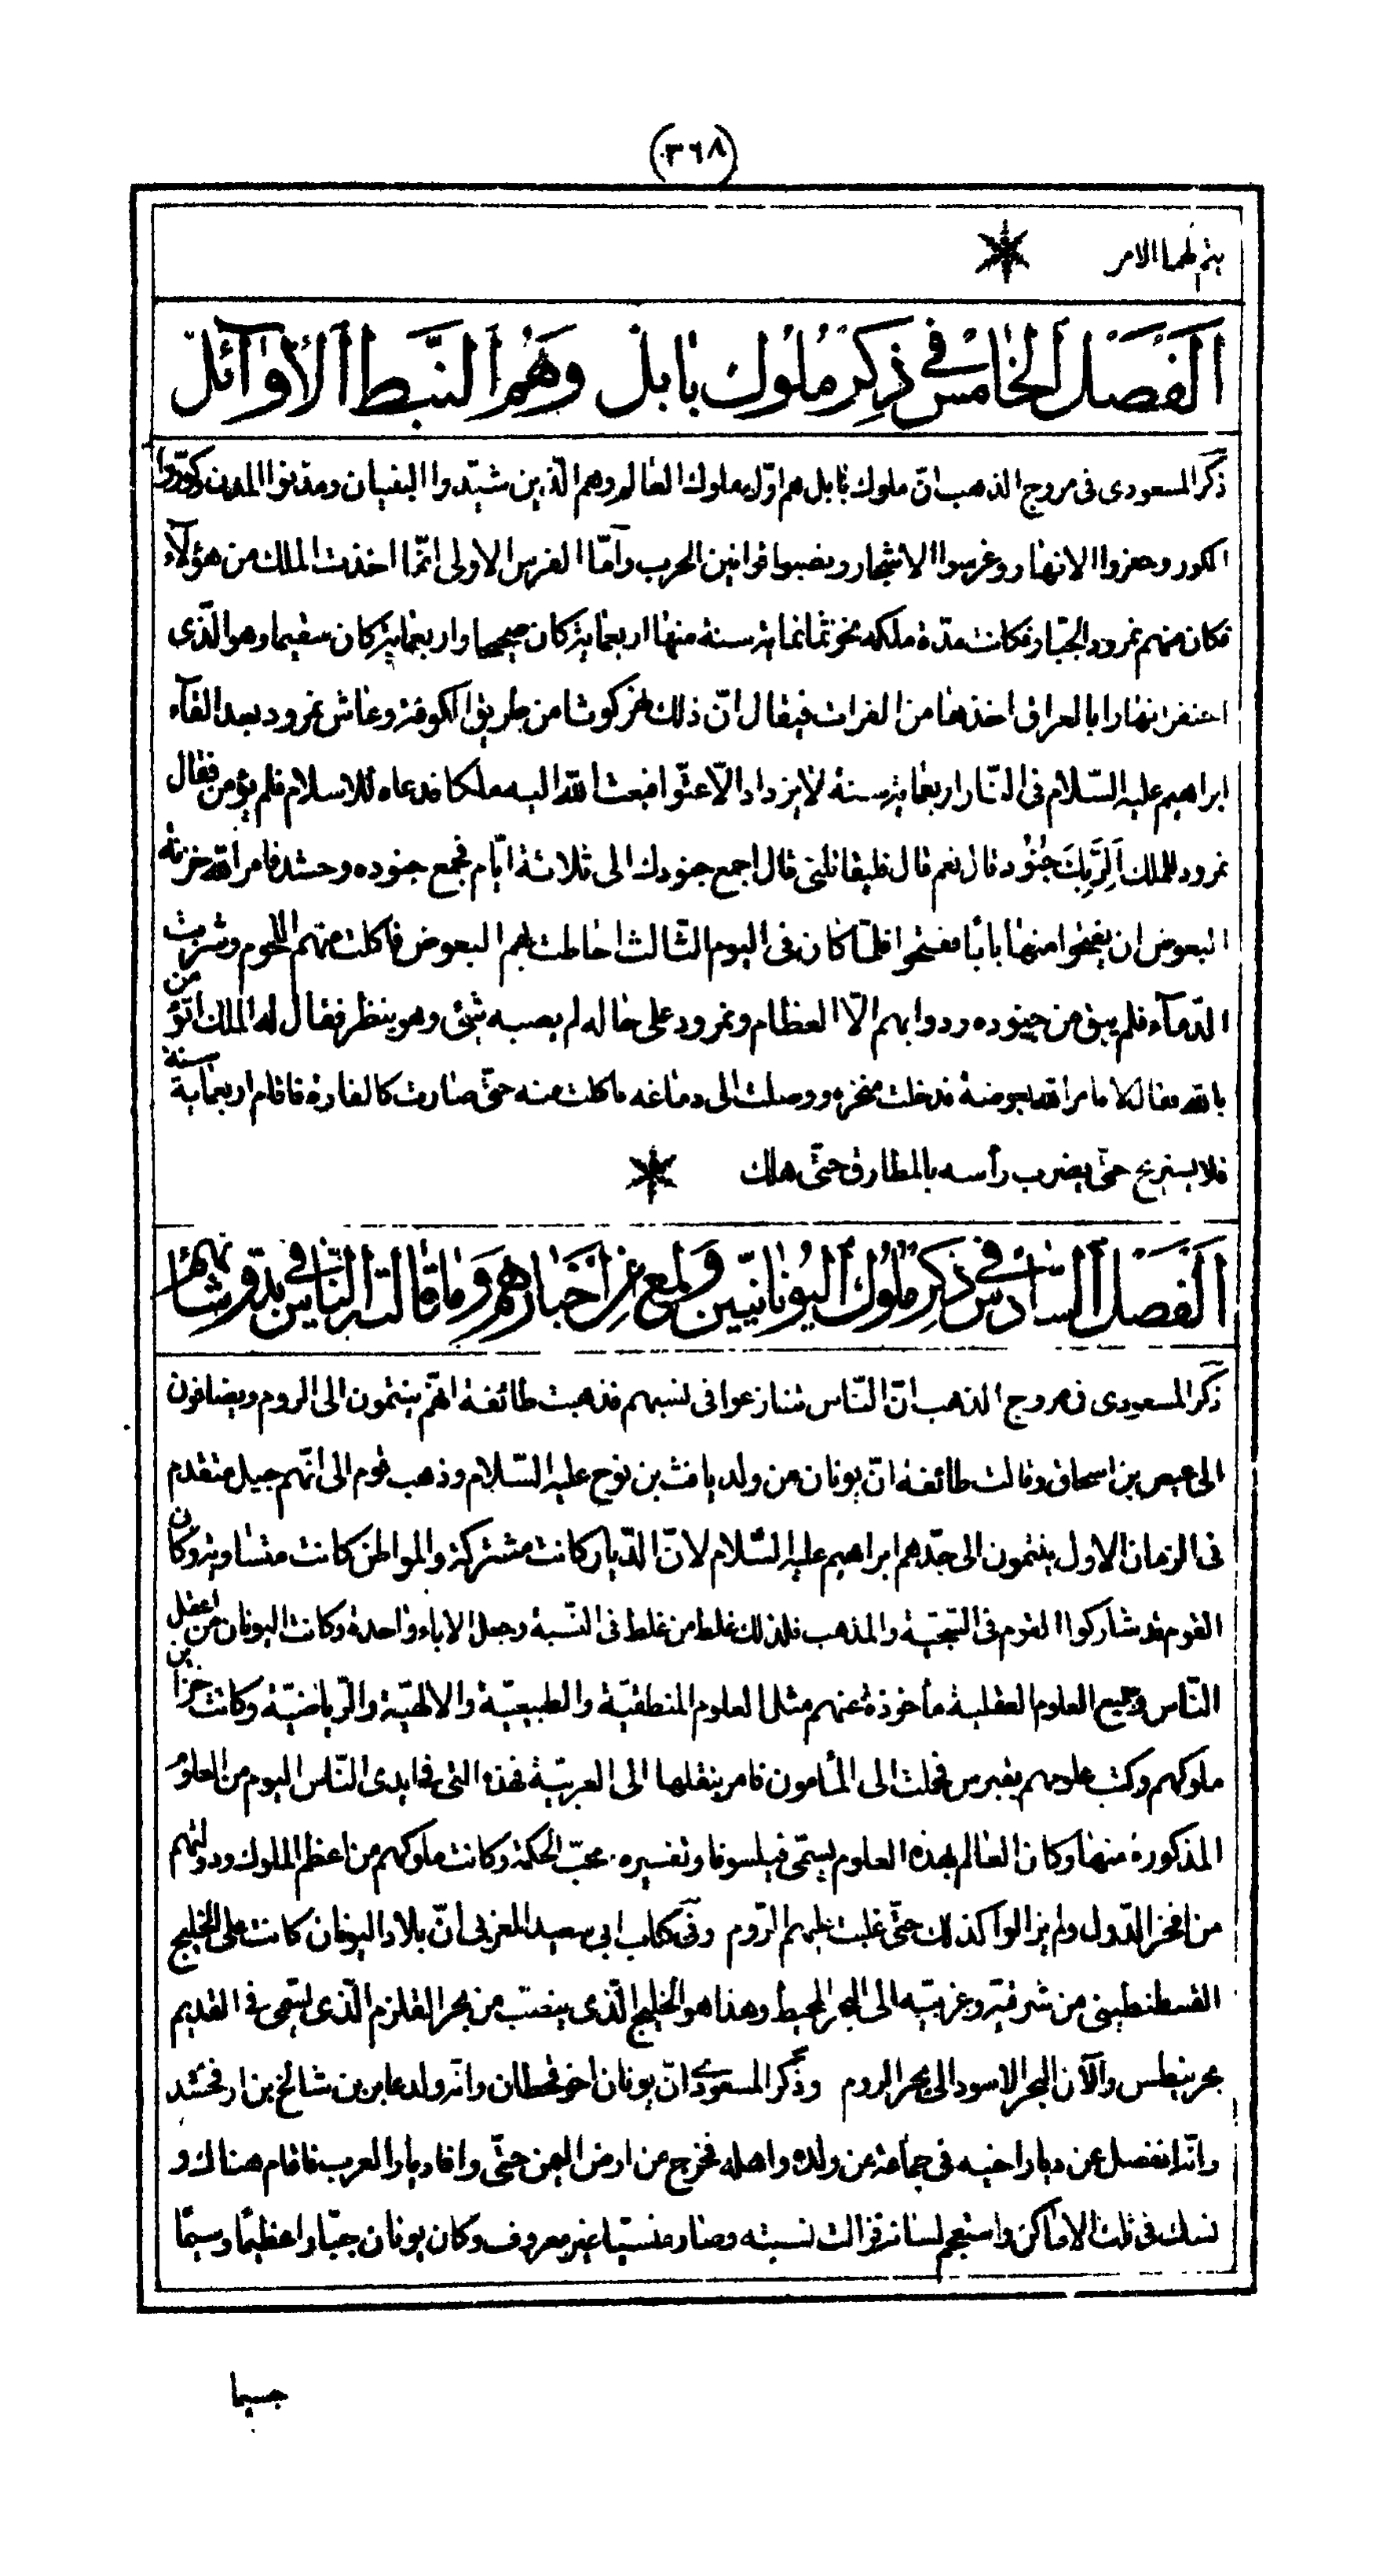 (٣٦٨)
يتم لهما الامر
الفصل الخامس في ذكر ملوك بابل وهم النبط الأوائل
ذكر المسعودى فى مروج الذهب انّ ملوك بابل هم اوّل ملوك العالم وهم الّذين شيّدوا البنيان ومدّنوا المدن وكوّروا
الكور وحفروا الانهار وغرسوا الاشجار ونصبوا قوانين الحرب وأمّا الفرس الاولى انّما اخذت الملك من هؤلاء
فكان منهم نمرود الجبّار فكانت مدّة ملكه نحو ثمانمائة سنة منها اربعمائة كان صحيحا واربعمائة كان سقيما وهو الّذى
احتفر انهارا بالعراق اخذها من الفرات فيقال انّ ذلك نهر كوثا من طريق الكوفة وعاش نمرود بعد القآء
ابراهيم عليه السّلام فى النّار اربعمائة سنة لا يزداد الّا عتّوا فبعث الله اليه ملكا فدعاه للاسلام فلم يؤمن فقال
نمرود للملك ألربّك جنود قال نعم قال فليقاتلنى قال اجمع جنودك الى ثلاثة ايّام فجمع جنوده وحشد فامر الله خزنة
البعوض ان يفتحوا منها بابا ففتحوا فلمّا كان فى اليوم الثّالث احاطت بهم البعوض فاكلت منهم اللحوم وشربت
الدّمآء فلم يبق من جنوده ودوابهم الّا العظام ونمرود على حاله لم يصبه شئ وهو ينظر فقال له الملك اتؤمن
بالله فقال لا فامر الله بعوضة فدخلت منخره ووصلت الى دماغه فاكلت منه حتّى صارت كالفارة فاقام اربعماية سنة
فلا يستريح حتّى يضرب رأسه بالمطارق حتّى هلك
الفصل السادس في ذكر ملوك اليونانيّين ولمع من اخبارهم وما قالته الناس في بدو شانهم
ذكر المسعودى فى مروج الذهب انّ النّاس تنازعوا فى نسبهم فذهبت طائفة انهّم ينتمون الى الروم ويضافون
الى عيص بن اسحاق وقالت طائفة انّ يونان من ولد يافث بن نوح عليه السّلام وذهب قوم الى انّهم جيل متقدم
فى الزمان الاول ينتمون الى جدّهم ابراهيم عليه السّلام لانّ الدّيار كانت مشتركة والمواطن كانت متساوية وكان
القوم قد شاركوا القوم فى السّجيّة والمذهب فلذلك غلط من غلط فى النّسبة وجعل الاباء واحدة وكانت اليونان من اعقل
النّاس وجميع العلوم العقلية مأخوذة عنهم مثل العلوم المنطقيّة والطبيعيّة والالهيّة والرّياضيّة وكانت خزاين
ملوكهم وكتب علومهم بقبرس فحملت الى المأمون فامر بنقلها الى العربيّة فهذه التى فى ايدى النّاس اليوم من العلوم
المذكورة منها وكان العالم بهذه العلوم يسمّى فيلسوفا وتفسيره محبّ الحكمة وكانت ملوكهم من اعظم الملوك ودولتهم
من افخر الدّول ولم يزالوا كذلك حتّى غلبت عليهم الرّوم وفى كتاب ابى سعيد المغربى انّ بلاد اليونان كانت على الخليج
القسطنطينى من شرقيّه وغربيّه الى البحر المحيط وهذا هو الخليج الّذى ينصّب من بحر القلزم الّذى يسمّى فى القديم
بحر نيطس والآن البحر الاسود الى بحر الروم وذكر المسعودى انّ يونان اخو قحطان وانّه ولد عابر بن شالخ بن ارفخشد
وانّه انفصل عن ديار اخيه فى جماعة من ولده واهله فخرج من ارض اليمن حتّى وافا ديار العرب فاقام هناك و
نسله فى تلك الاماكن واستعجم لسانه فزالت نسبته وصار منسيّا غير معروف وكان يونان جبّارا عظيما وسيمّا
جسيما